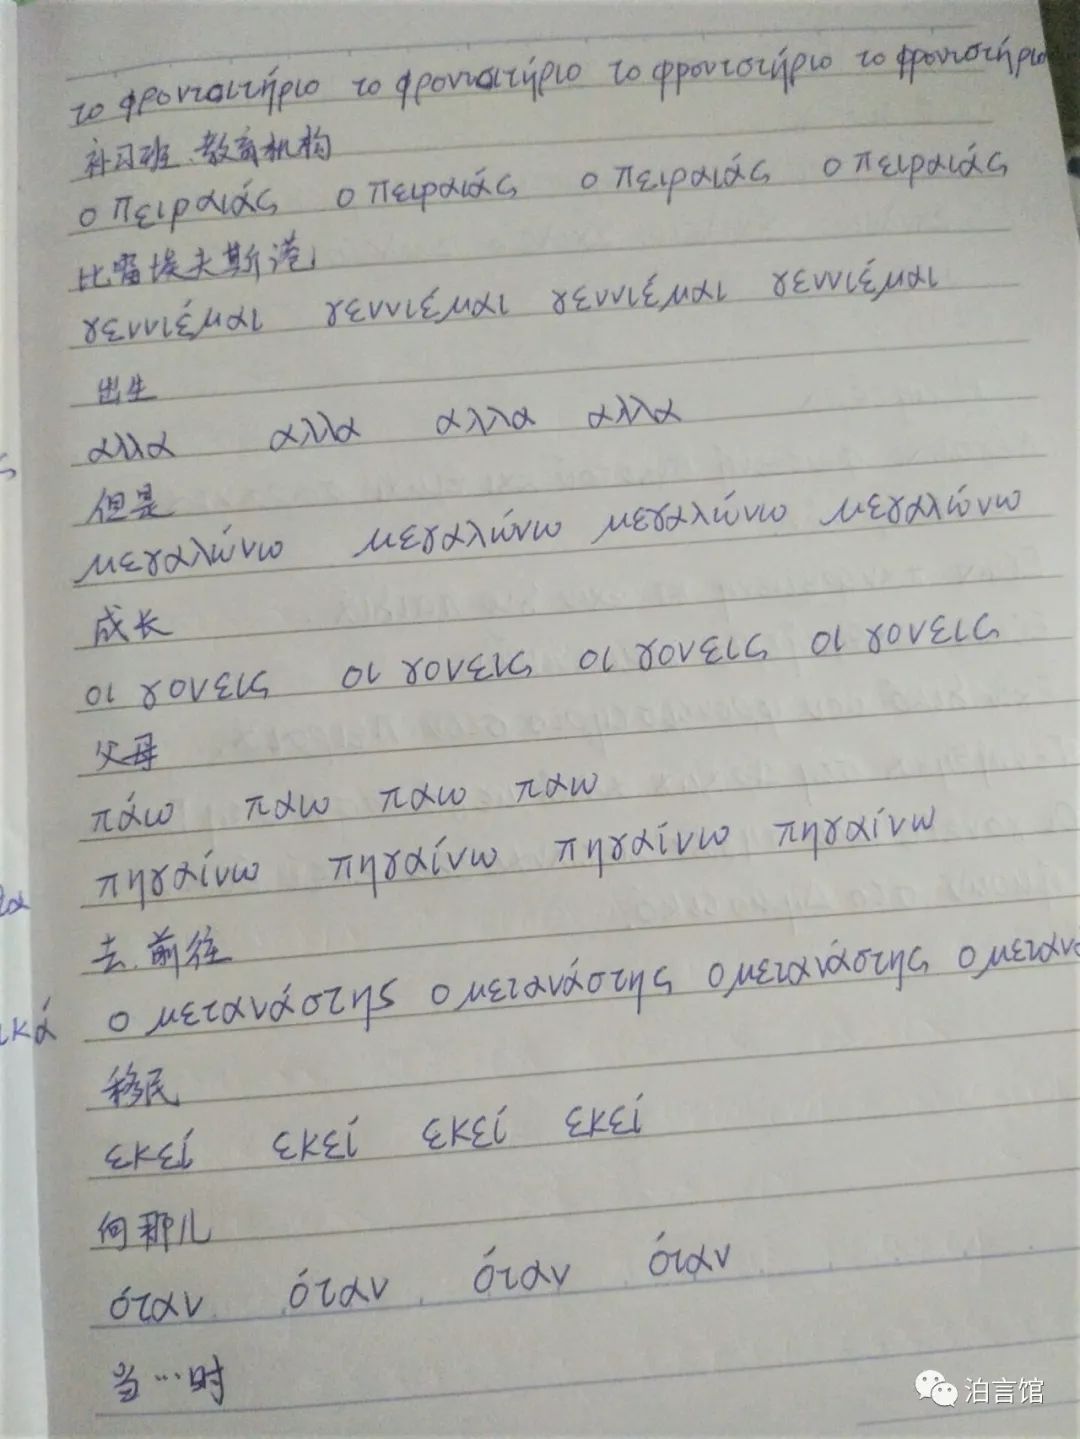 το φρονταιτήριο το φρονταιτήριο το φροντστήριο το φροντστήριο
补习班.教育机构
ο Πειραιάς ο Πειραιάς ο Πειραιάς ο Πειραιάς
比雷埃夫斯港
γεννιέμαι γεννιέμαι γεννιέμαι γεννιέμαι
出生
αλλα αλλα αλλα αλλα
但是
μεγαλώνω μεγαλώνω μεγαλώνω μεγαλώνω
成长
οι γονεις οι γονεις οι γονεις οι γονεις
父母
πάω παω παω παω
πηγαίνω πηγαίνω πηγαίνω πηγαίνω
去.前往
ο μετανάστης ο μετανάστης ο μετανάστης ο μετανα
移民
εκεί εκεί εκεί εκεί
向那儿
όταν όταν όταν όταν
当…时
ικά
泊言馆